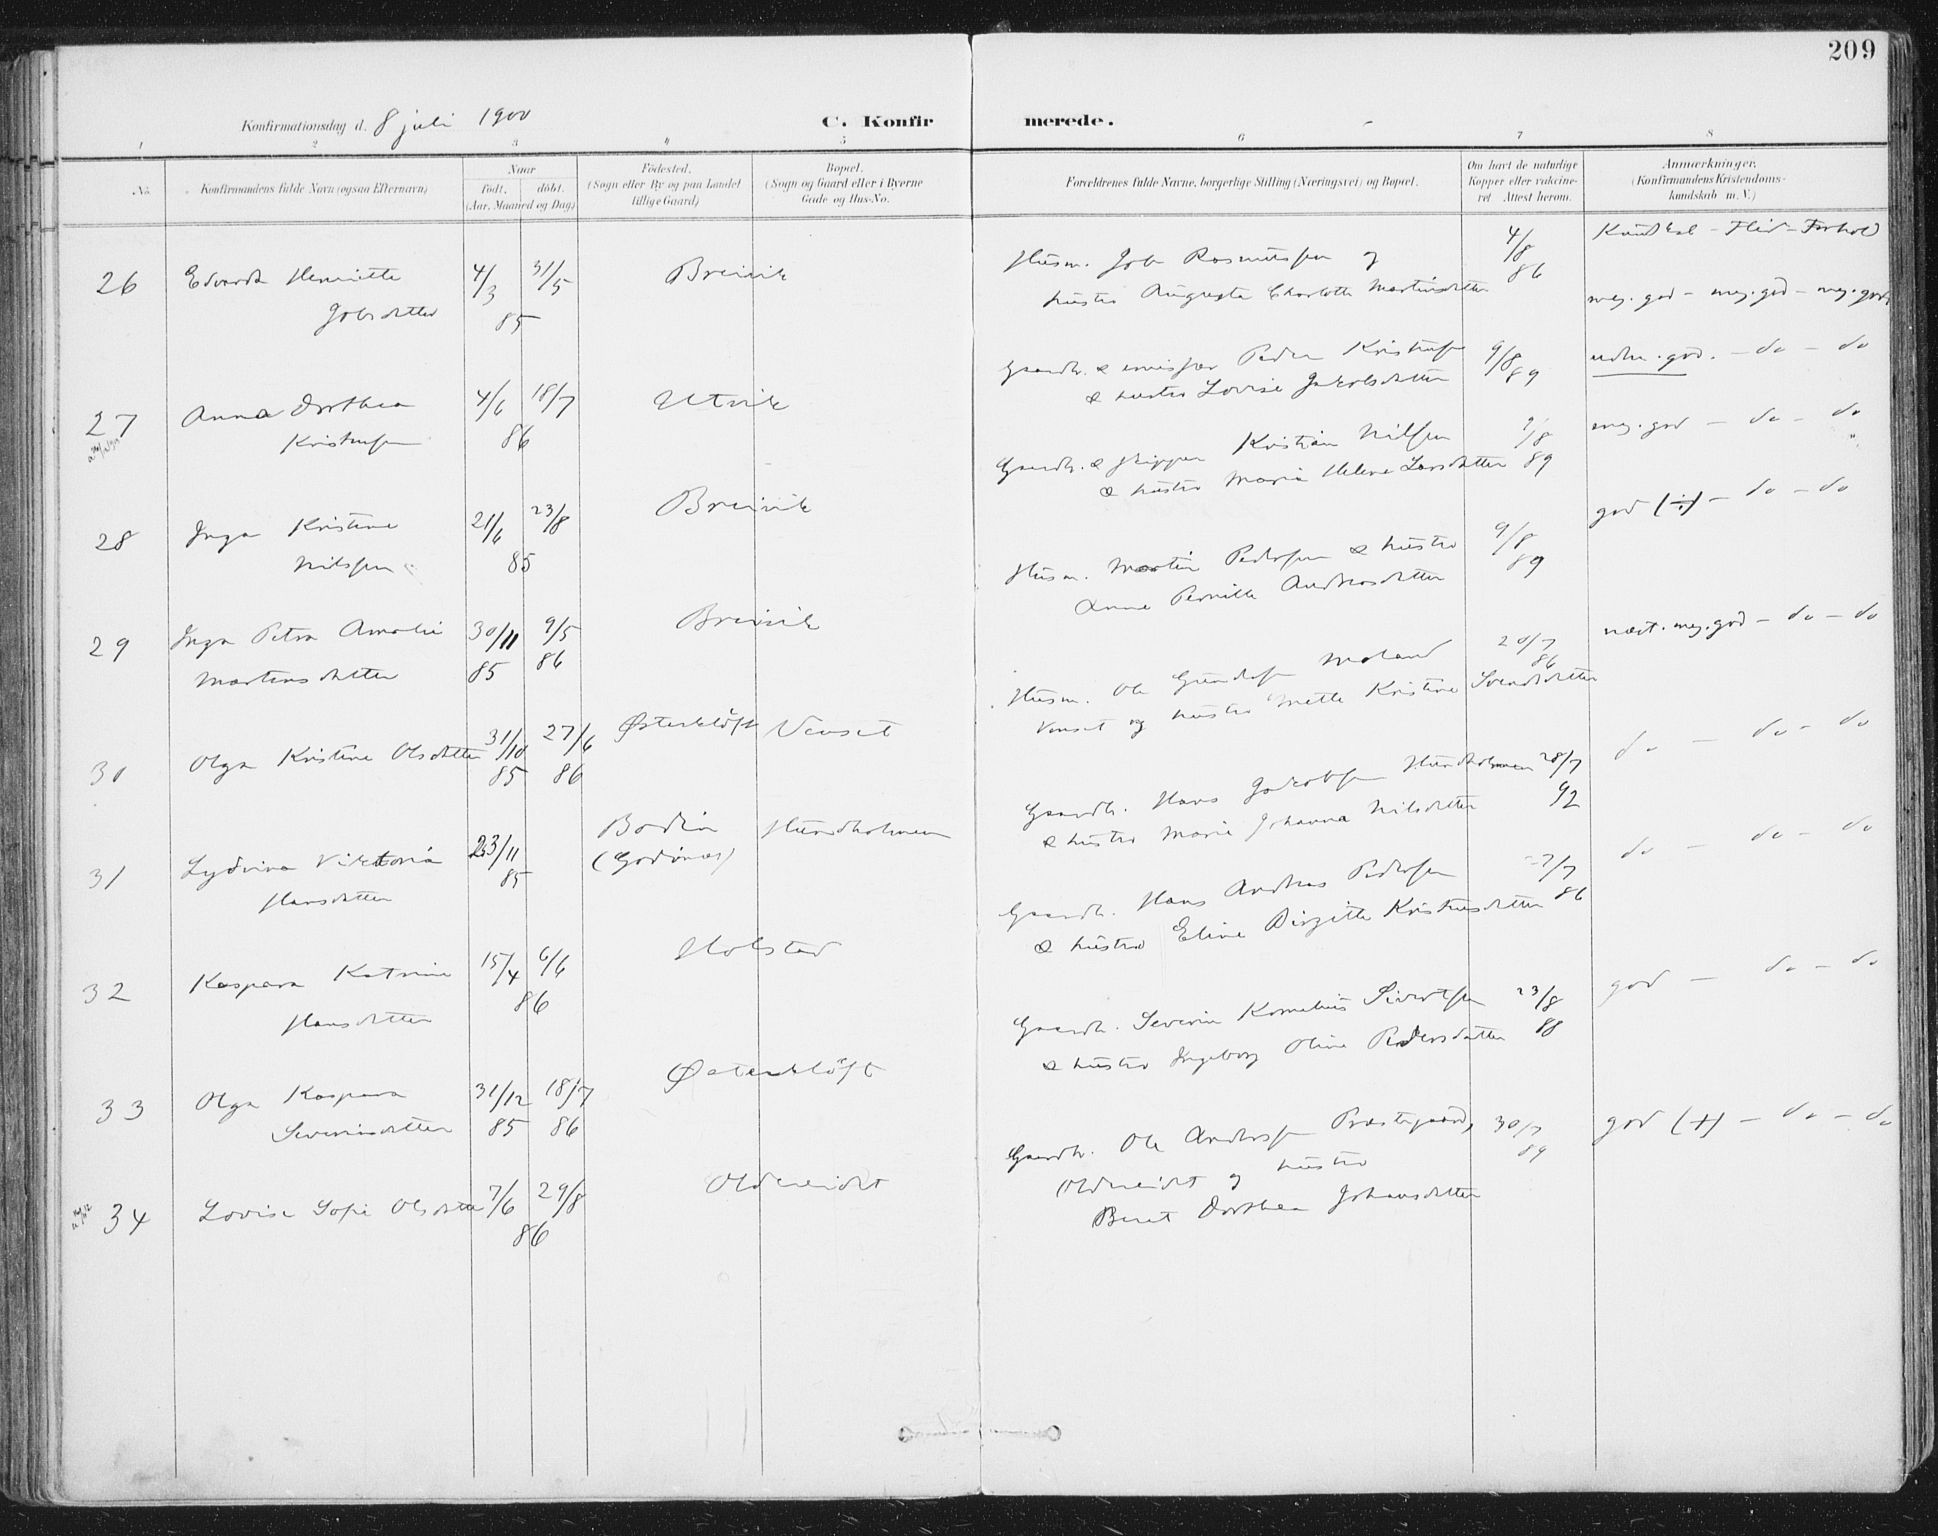 209
Konfirmationsdag d. 8 juli 1900
C. Konfirmerede.
1 2 3 4 5 6 7 8
No.
Konfirmandens fulde Navn (ogsaa Efternavn)
Naar
født. døbt.
(Aar, Maaned og Dag)
Fødested.
(Sogn eller By og paa Landet
tillige Gaard)
Bopæl.
(Sogn og Gaard eller i Byerne
Gade og Hus-No.
Forældrenes fulde Navne, borgerlige Stilling (Næringsvei) og Bopæl.
Om havt de naturlige
Kopper eller vakcine-
ret Attest herom.
Anmærkninger.
(Konfirmandens Kristendoms-
kundskab m. V.)
Kundskab - Flid - Forhold
26 Edvarda Henriette 4/3 31/5 Breivik Husm. Job Rasmussen og 4/8
Jobsdatter 85 hustru Augusta Charlotte Martinsdatter 86 meg. god - meg. god - meg. god
27 Anna Dorthea 4/6 18/7 Utvik Gaardb. & Peder Kristensen 9/8 udm. god. - do - do
Kristensen 86 & hustru Lovise Jakobsdatter 89
28 Inga Kristine 21/6 23/8 Breivik Gaardb. & skipper Kristian Nilsen 9/8 meg. god - do - do
Nilssen 85 & hustru Maria Helene Larsdatter 89
29 Inga Petra Amalie 30/11 9/5 Breivik Husm. Martin Pedersen & hustru 9/8 god (÷) - do - do
Martinsdatter 85 86 Anna Pernille Andreasdatter 89
30 Olga Kristine Olsdatter 31/10 27/6 Østerkløft Venset Husm. Ole Moland 20/7 næst. meg. god - do - do
85 86 Venset og hustru Mette Kristine Svendsdatter 86
31 Lydvina Viktoria 23/11 Bodin Hundholmen Gaardb. Hans Jakobsen Hundholmen 28/7 do - do - do
Hansdatter 85 (Godønæs) & hustru Marie Johanna Nilsdatter 92
32 Kaspara Katrine 15/4 6/6 Holstad Gaardb. Hans Andreas Pedersen 27/7 do - do - do
Hansdatter 86 & hustru Eline Birgitte Kristensdatter 86
33 Olga Kaspara 31/12 18/7 Østerkløft Gaardb. Severin Kornelius Sivertsen 23/8 god - do - do
Severinsdatter 85 86 & hustru Ingeborg Oline Pedersdatter 88
34 Lovise Sofie Olsdatter 7/6 29/8 Oldereidet Gaardb. Ole Andersen Præstegaard, 30/7 god (+) - do - do
86 Oldereidet og hustru 89
Beret Dorthea Johansdatter